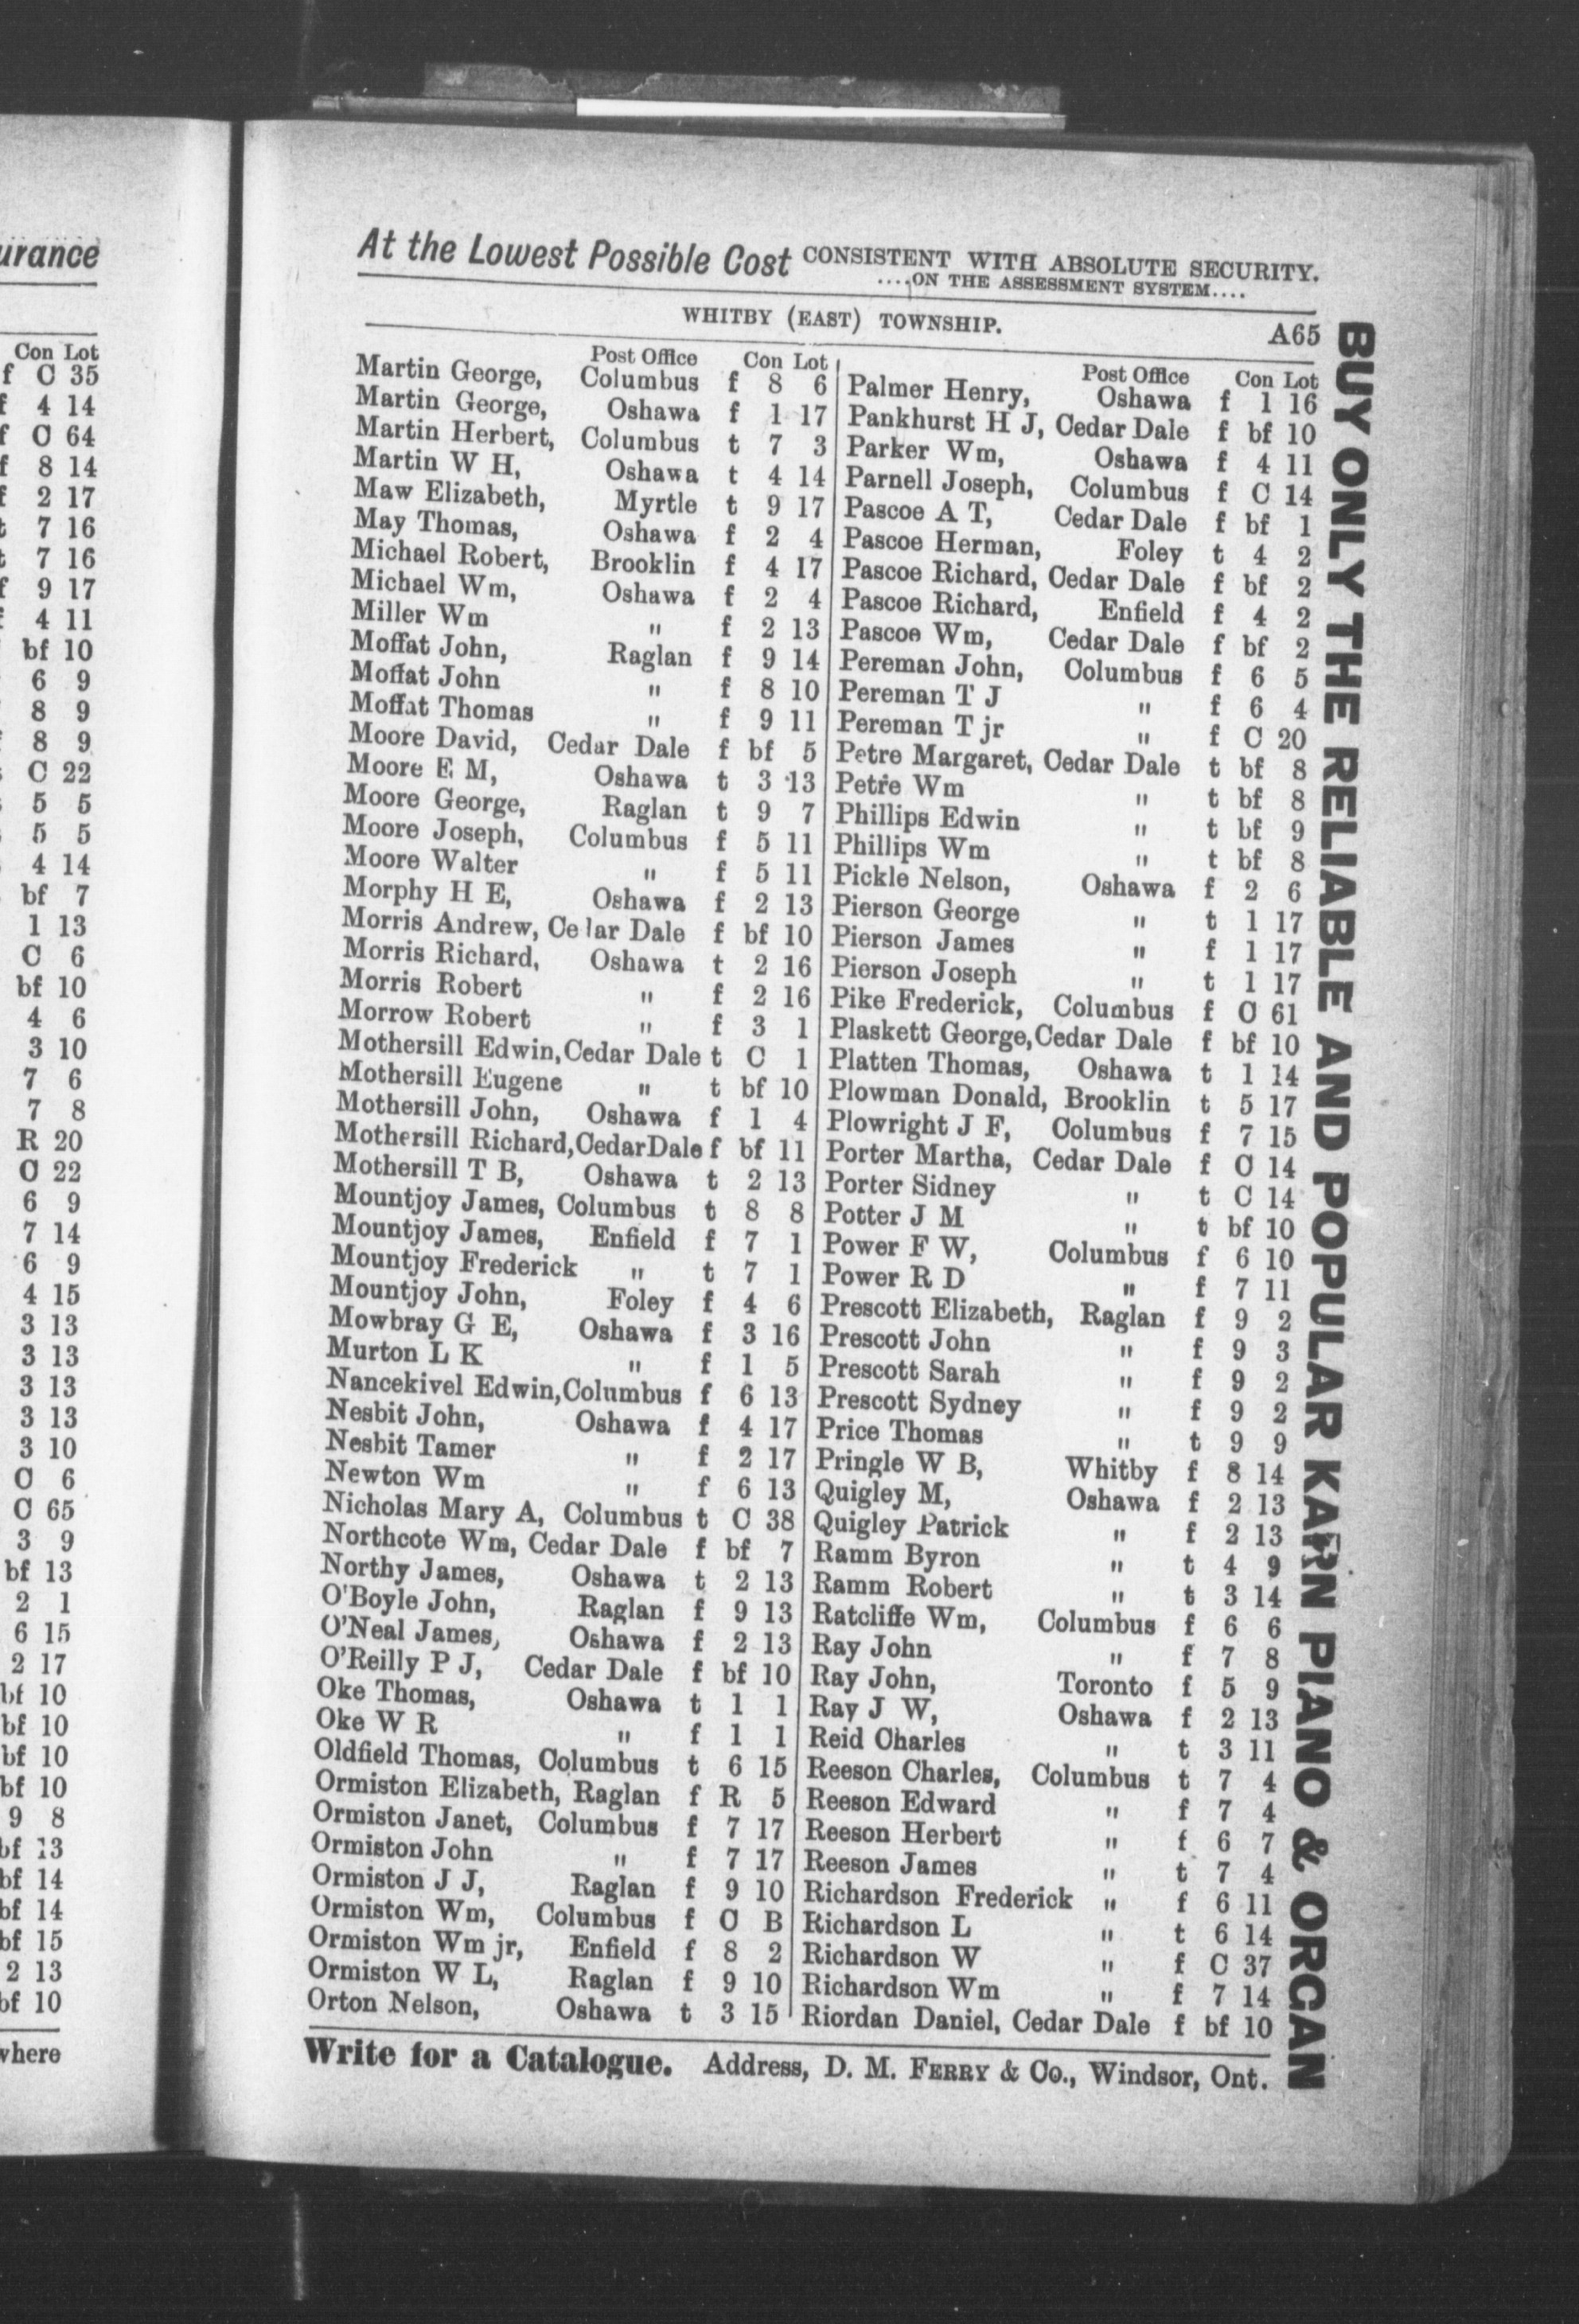 urance
Con Lot
f C 35
f 4 14
f C 64
f 8 14
f 2 17
t 7 16
t 7 16
f 9 17
f 4 11
bf 10
6 9
8 9
8 9
C 22
5 5
5 5
4 14
bf 7
1 13
C 6
bf 10
4 6
3 10
7 6
7 8
R 20
C 22
6 9
7 14
6 9
4 15
3 13
3 13
3 13
3 13
3 10
C 6
C 65
3 9
bf 13
2 1
6 15
2 17
bf 10
bf 10
bf 10
bf 10
9 8
bf 13
bf 14
bf 14
bf 15
2 13
bf 10
where
At the Lowest Possible Cost CONSISTENT WITH ABSOLUTE SECURITY.
....ON THE ASSESSMENT SYSTEM....
WHITBY (EAST) TOWNSHIP. A65
Post Office Con Lot
Martin George, Columbus f 8 6
Martin George, Oshawa f 1 17
Martin Herbert, Columbus t 7 3
Martin W H, Oshawa t 4 14
Maw Elizabeth, Myrtle t 9 17
May Thomas, Oshawa f 2 4
Michael Robert, Brooklin f 4 17
Michael Wm, Oshawa f 2 4
Miller Wm " f 2 13
Moffat John, Raglan f 9 14
Moffat John " f 8 10
Moffat Thomas " f 9 11
Moore David, Cedar Dale f bf 5
Moore E M, Oshawa t 3 13
Moore George, Raglan t 9 7
Moore Joseph, Columbus f 5 11
Moore Walter " f 5 11
Morphy H E, Oshawa f 2 13
Morris Andrew, Cedar Dale f bf 10
Morris Richard, Oshawa t 2 16
Morris Robert " f 2 16
Morrow Robert " f 3 1
Mothersill Edwin, Cedar Dale t C 1
Mothersill Eugene " t bf 10
Mothersill John, Oshawa f 1 4
Mothersill Richard, Cedar Dale f bf 11
Mothersill T B, Oshawa t 2 13
Mountjoy James, Columbus t 8 8
Mountjoy James, Enfield f 7 1
Mountjoy Frederick " t 7 1
Mountjoy John, Foley f 4 6
Mowbray G E, Oshawa f 3 16
Murton L K " f 1 5
Nancekivel Edwin, Columbus f 6 13
Nesbit John, Oshawa f 4 17
Nesbit Tamer " f 2 17
Newton Wm " f 6 13
Nicholas Mary A, Columbus t C 38
Northcote Wm, Cedar Dale f bf 7
Northy James, Oshawa t 2 13
O'Boyle John, Raglan f 9 13
O'Neal James, Oshawa f 2 13
O'Reilly P J, Cedar Dale f bf 10
Oke Thomas, Oshawa t 1 1
Oke W R " f 1 1
Oldfield Thomas, Columbus t 6 15
Ormiston Elizabeth, Raglan f R 5
Ormiston Janet, Columbus f 7 17
Ormiston John " f 7 17
Ormiston J J, Raglan f 9 10
Ormiston Wm, Columbus f C B
Ormiston Wm jr, Enfield f 8 2
Ormiston W L, Raglan f 9 10
Orton Nelson, Oshawa t 3 15
Post Office Con Lot
Palmer Henry, Oshawa f 1 16
Pankhurst H J, Cedar Dale f bf 10
Parker Wm, Oshawa f 4 11
Parnell Joseph, Columbus f C 14
Pascoe A T, Cedar Dale f bf 1
Pascoe Herman, Foley t 4 2
Pascoe Richard, Cedar Dale f bf 2
Pascoe Richard, Enfield f 4 2
Pascoe Wm, Cedar Dale f bf 2
Pereman John, Columbus f 6 5
Pereman T J " f 6 4
Pereman T jr " f C 20
Petre Margaret, Cedar Dale t bf 8
Petre Wm " t bf 8
Phillips Edwin " t bf 9
Phillips Wm " t bf 8
Pickle Nelson, Oshawa f 2 6
Pierson George " t 1 17
Pierson James " f 1 17
Pierson Joseph " t 1 17
Pike Frederick, Columbus f C 61
Plaskett George, Cedar Dale f bf 10
Platten Thomas, Oshawa t 1 14
Plowman Donald, Brooklin t 5 17
Plowright J F, Columbus f 7 15
Porter Martha, Cedar Dale f C 14
Porter Sidney " t C 14
Potter J M " t bf 10
Power F W, Columbus f 6 10
Power R D " f 7 11
Prescott Elizabeth, Raglan f 9 2
Prescott John " f 9 3
Prescott Sarah " f 9 2
Prescott Sydney " f 9 2
Price Thomas " t 9 9
Pringle W B, Whitby f 8 14
Quigley M, Oshawa f 2 13
Quigley Patrick " f 2 13
Ramm Byron " t 4 9
Ramm Robert " t 3 14
Ratcliffe Wm, Columbus f 6 6
Ray John " f 7 8
Ray John, Toronto f 5 9
Ray J W, Oshawa f 2 13
Reid Charles " t 3 11
Reeson Charles, Columbus t 7 4
Reeson Edward " f 7 4
Reeson Herbert " f 6 7
Reeson James " t 7 4
Richardson Frederick " f 6 11
Richardson L " t 6 14
Richardson W " f C 37
Richardson Wm " f 7 14
Riordan Daniel, Cedar Dale f bf 10
Write for a Catalogue. Address, D. M. FERRY & Co., Windsor, Ont.
BUY ONLY THE RELIABLE AND POPULAR KARN PIANO & ORGAN